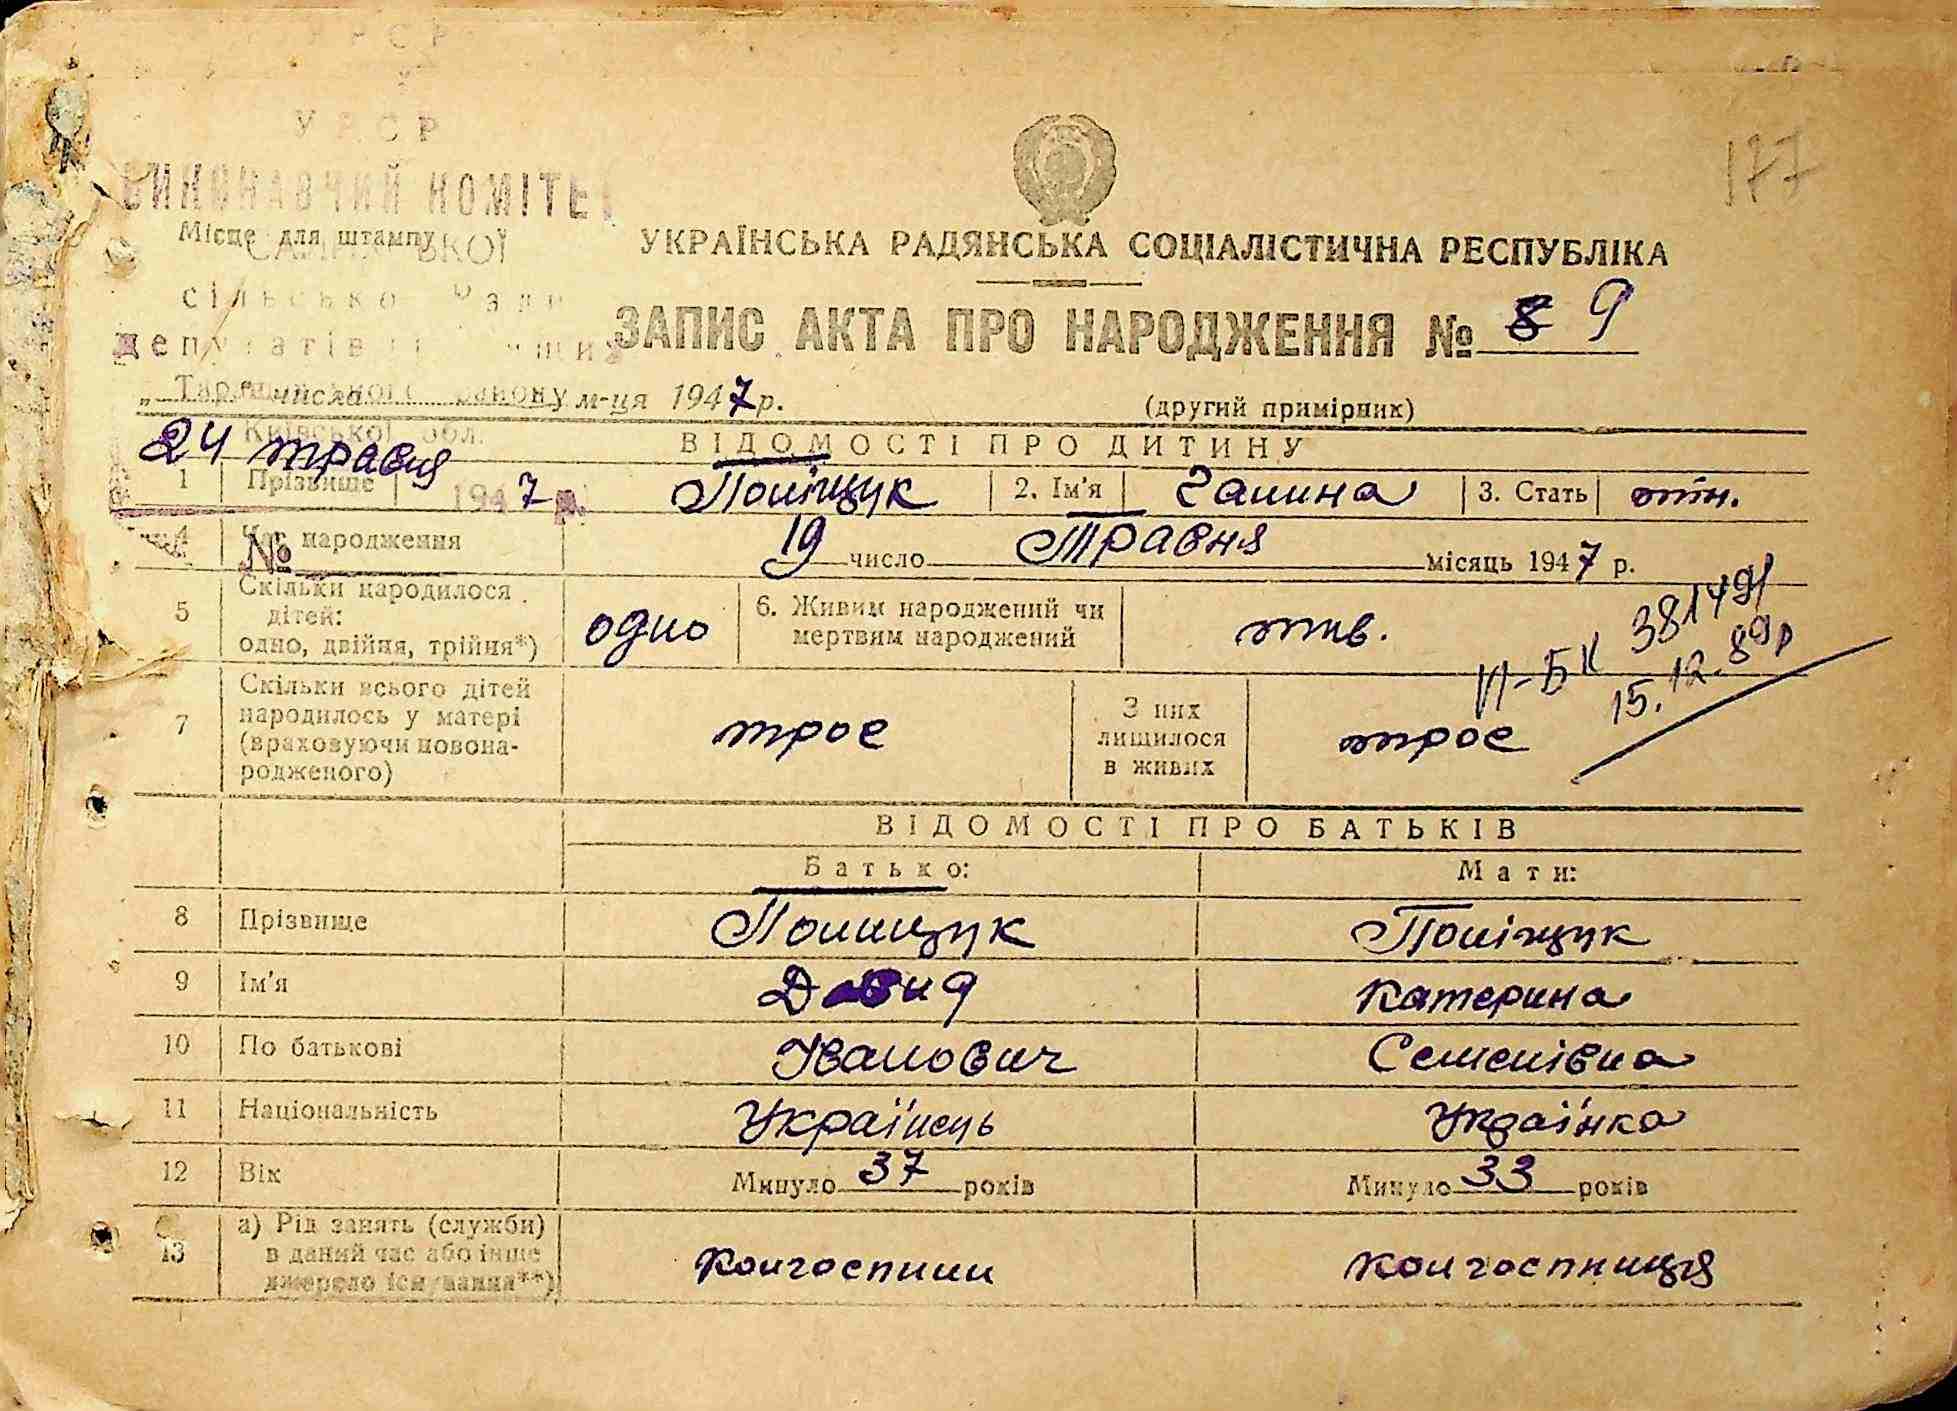 УРСР
УРСР
ВИКОНАВЧИЙ КОМІТЕТ
177
Місце для штампу
УКРАЇНСЬКА РАДЯНСЬКА СОЦІАЛІСТИЧНА РЕСПУБЛІКА
ЗАПИС АКТА ПРО НАРОДЖЕННЯ № 8 9
числа м-ця 1947 р.
(другий примірник)
Київської обл.
24 травня
1947 р.
№
ВІДОМОСТІ ПРО ДИТИНУ
1 Прізвище Поліщук 2. Ім'я Галина 3. Стать жін.
4 Час народження 19 число Травня місяць 1947 р.
5 Скільки народилося дітей: одно, двійня, трійня*) одно 6. Живим народжений чи мертвим народжений жив.
ІІ-БК 381491
15.12.89р
7 Скільки всього дітей народилось у матері (враховуючи новонародженого) троє З них лишилося в живих троє
ВІДОМОСТІ ПРО БАТЬКІВ
Батько: Мати:
8 Прізвище Полищук Поліщук
9 Ім'я Давид Катерина
10 По батькові Іванович Семенівна
11 Національність Українець Українка
12 Вік Минуло 37 років Минуло 33 років
13 а) Рід занять (служби) в даний час або інше джерело існування**) колгоспник колгоспниця